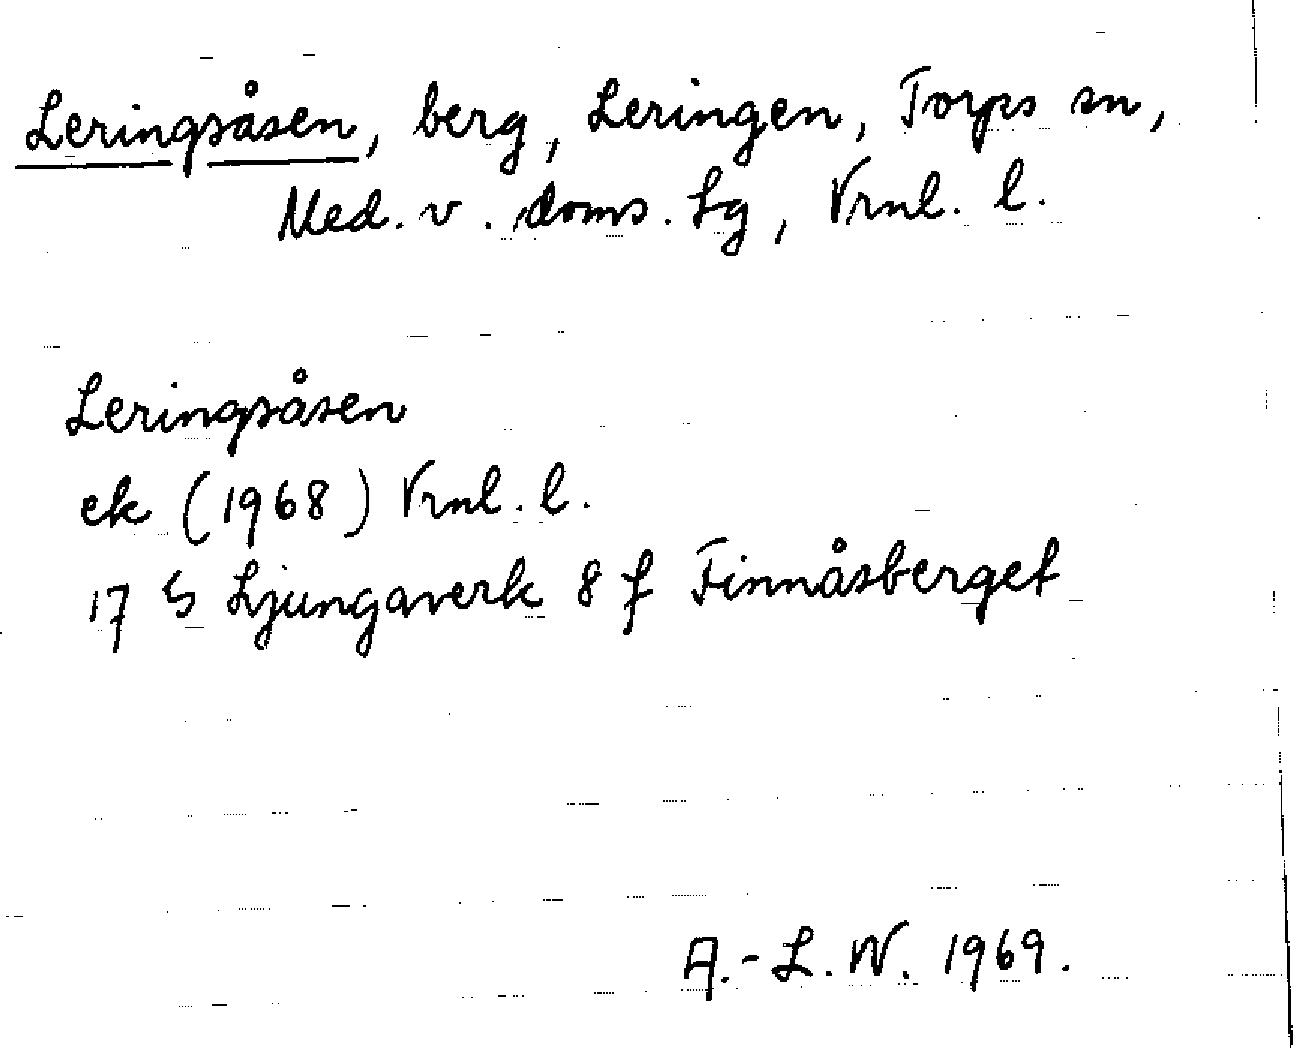 Leringsåsen, berg, Leringen, Torps sn,
Med. v. doms. lg, Vrnl. l.
Leringsåsen
ek (1968) Vrnl. l.
17 G Ljungaverk 8 f Finnåsberget
A.-L. W. 1969.